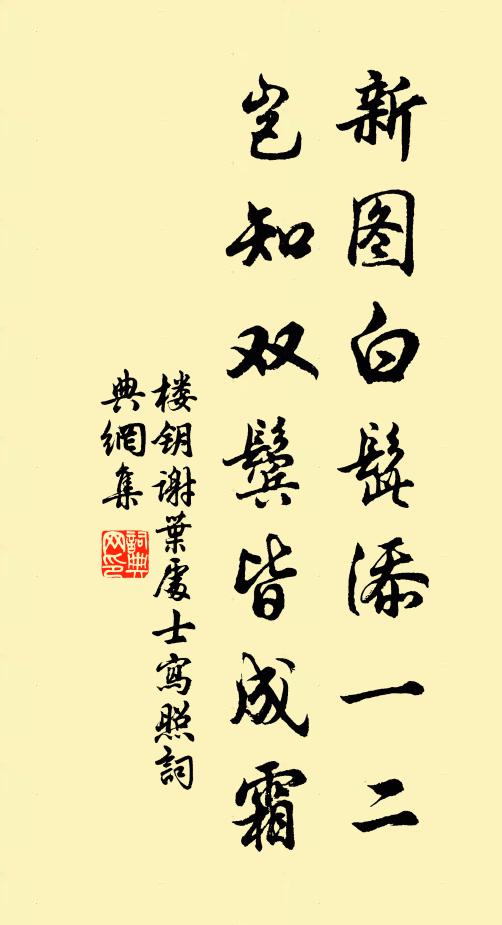 新图白髭添一二
岂知双鬓皆成霜
楼钥谢葉處士寫照詞
典網集
詞典
网印